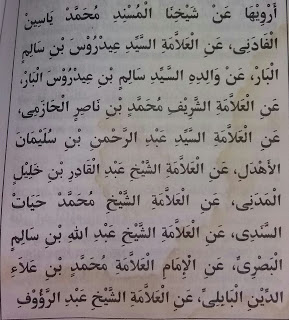 أَرْوِيْهَا عَنْ شَيْخِنَا الْمُسْنِدِ مُحَمَّدْ يَاسِيْنَ
الْفَادَنِى، عَنِ الْعَلَّامَةِ السَّيِّدِ عِيْدَرُوْسَ بْنِ سَالِمِ
الْبَارْ، عَنْ وَالِدِهِ السَّيِّدِ سَالِمِ بْنِ عِيْدَرُوْسَ الْبَارْ،
عَنِ الْعَلَّامَةِ الشَّرِيْفِ مُحَمَّدِ بْنِ نَاصِرِ الْحَازِمِى،
عَنِ الْعَلَّامَةِ السَّيِّدِ عَبْدِ الرَّحْمٰنِ بْنِ سُلَيْمَانَ
الْأَهْدَلِ، عَنِ الْعَلَّامَةِ الشَّيْخِ عَبْدِ الْقَادِرِ بْنِ خَلِيْلِ
الْمَدَنِى، عَنِ الْعَلَّامَةِ الشَّيْخِ مُحَمَّدْ حَيَاتْ
السَّنَدِى، عَنِ الْعَلَّامَةِ الشَّيْخِ عَبْدِ اللهِ بْنِ سَالِمِ
الْبَصْرِى، عَنِ الْإِمَامِ الْعَلَّامَةِ مُحَمَّدِ بْنِ عَلَاءِ
الدِّيْنِ الْبَابِلِىِّ، عَنِ الْعَلَّامَةِ الشَّيْخِ عَبْدِ الرَّؤُوْفِ